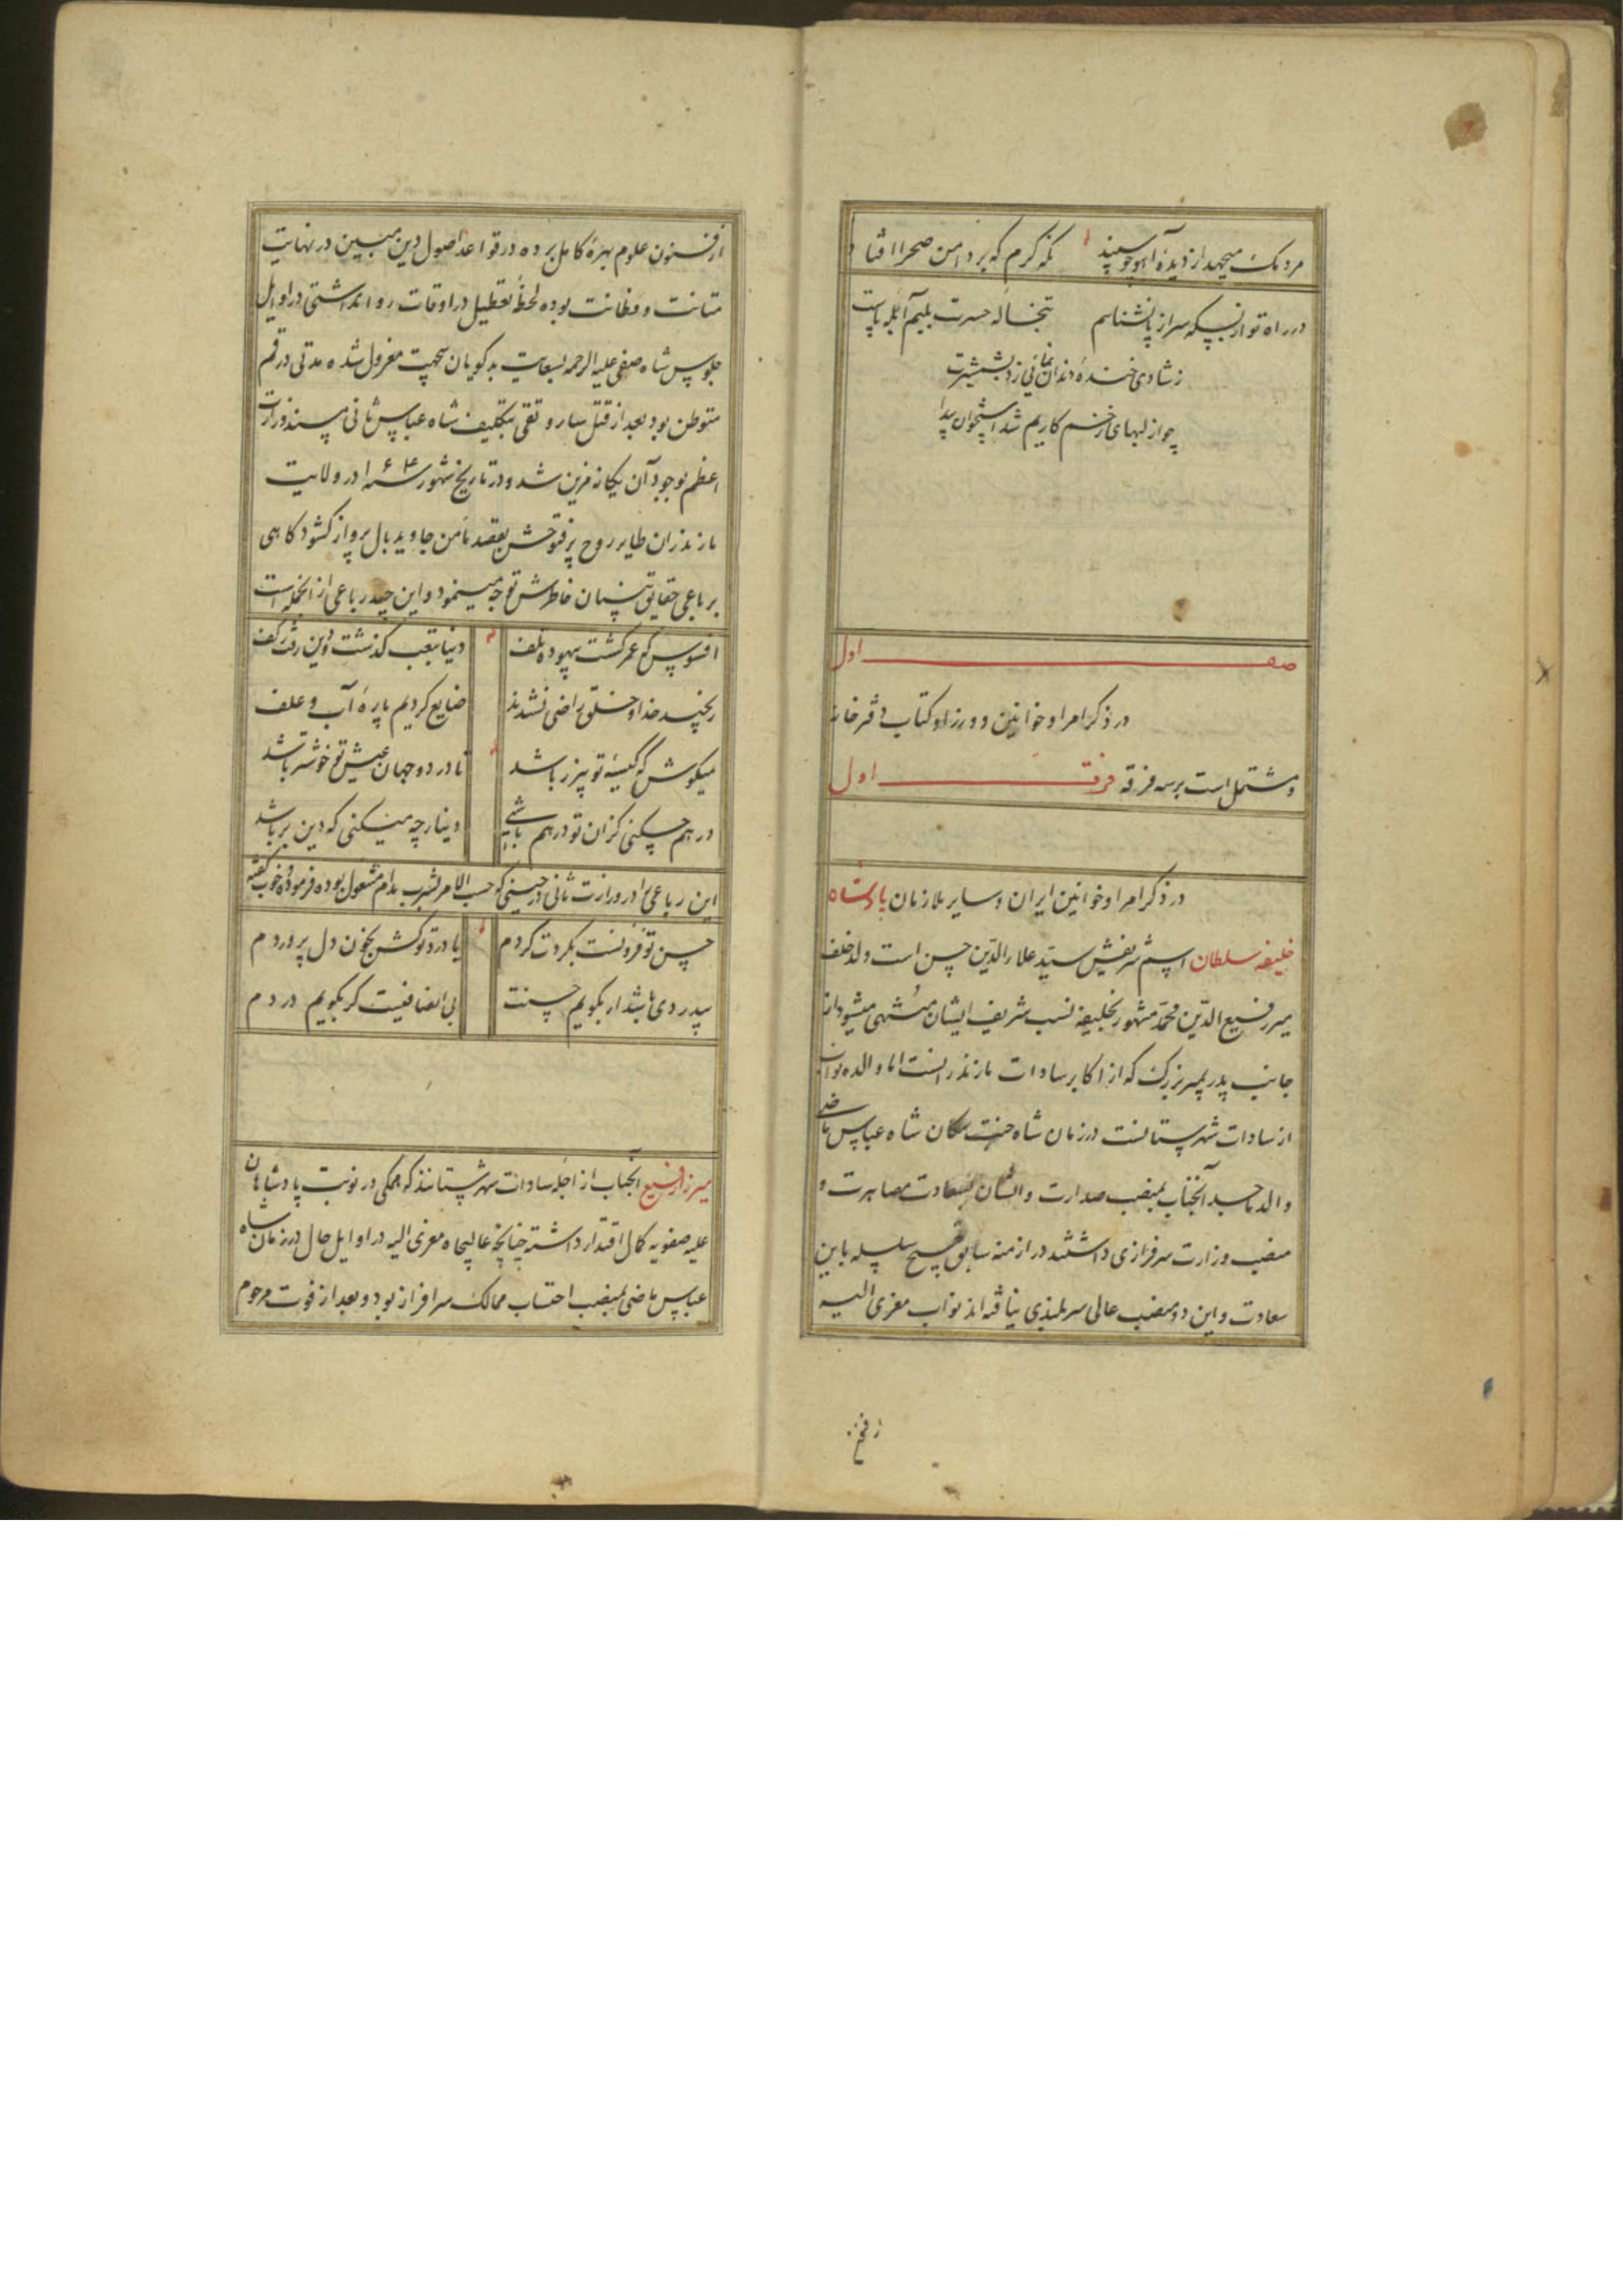 مردمک میجهد از دیدهٔ آهو چو سپند نگه گرم که بر دامن صحرا افتاد
در راه تو از بسکه سر از پا نشناسم تبخاله حسرت بلبم آبله پاست
ز شادی خنده دندان نمائی زد بشمشیرت
چو از لبهای زخم کاریم شد استخوان پیدا
صف اول
در ذکر امرا و خوانین و وزرا و کتاب دفترخانه
و مشتمل است بر سه فرقه فرقه اول
در ذکر امرا و خوانین ایران و سایر ملازمان پادشاه
خلیفه سلطان اسم شریفش سید علاءالدین حسن است ولد خلف
میر رفیع الدین محمد مشهور بخلیفه نسب شریف ایشان منتهی میشود از
جانب پدر بمیر بزرگ که از اکابر سادات مازندرانست اما والده نواب
از سادات شهرستانست در زمان شاه جنت مکان شاه عباس ماضی
والد ماجد آنجناب بمنصب صدارت و ایشان بسعادت مصاهرت و
منصب وزارت سرفرازی داشتند در ازمنه سابق هیچ سلسله باین
سعادت و این دو منصب عالی سربلندی نیافته اند نواب معزی الیه
از فنون
از فنون علوم بهره کامل برده در قواعد اصول دین مبین در نهایت
متانت و فطانت بوده لحظه تعطیل در اوقات روا نداشتی در اوایل
جلوس شاه صفی علیه الرحمه بسعایت بدگویان بیجهت معزول شده مدتی در قم
متوطن بود بعد از قتل سارو تقی بتکلیف شاه عباس ثانی مسند وزارت
اعظم بوجود آن یگانه مزین شد و در تاریخ شهور سنه ۱۰۶۴ در ولایت
مازندران طایر روح پرفتوحش بقصد مأمن جاوید بال پرواز گشود گاهی
برباعی حقایق بنیان خاطرش توجه مینمود و این چند رباعی از آنجمله است
افسوس که عمر گشت بیهوده تلف دنیا بتعب گذشت و دین رفت ز کف
رنجید خدا و خلق راضی نشدند ضایع کردیم پاره آب و علف
میکوش که کیسهٔ تو پر زر باشد تا در دو جهان عیش تو خوشتر باشد
درهم چکنی کزان تو درهم باشی دینار چه میکنی که دین بر باشد
این رباعی را در وزارت ثانی در حینی که حسب الامر بشرب مدام مشغول بوده فرموده خوب گفته
حسن تو فزونست بگردت گردم یا درد تو کش بخون دل پروردم
بیدردی باشد ار بگویم حسنت بی انصافیست گر بگویم دردم
میرزا رفیع آنجناب از اجله سادات شهرستانند که همگی در نوبت پادشاهان
علیه صفویه کمال اقتدار داشته چنانچه عالیجاه معزی الیه در اوایل حال در زمان شاه
عباس ماضی بمنصب احتساب ممالک سرافراز بود و بعد از فوت مرحوم